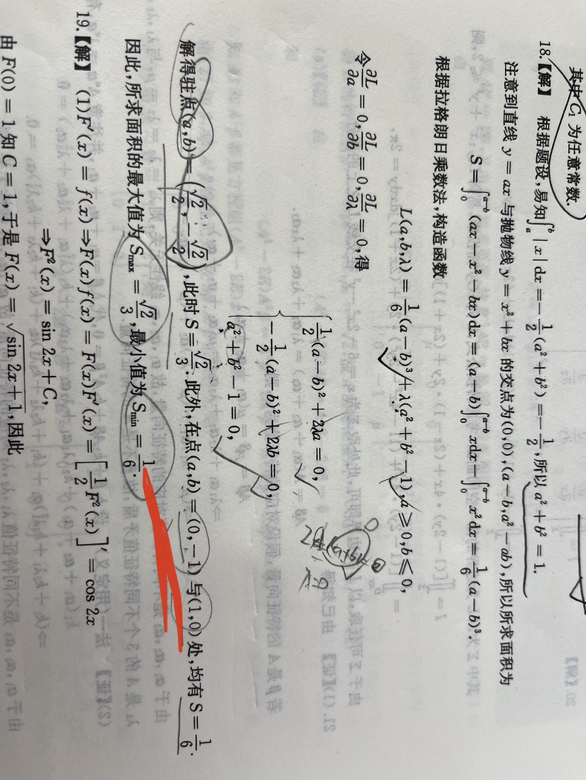 其中C₁为任意常数.
18.【解】 根据题设,易知∫ₐᵇ|x|dx=-1/2(a²+b²)=-1/2,所以a²+b²=1.
注意到直线y=ax与抛物线y=x²+bx的交点为(0,0),(a-b,a²-ab),所以所求面积为
S=∫₀ᵃ⁻ᵇ(ax-x²-bx)dx=(a-b)∫₀ᵃ⁻ᵇxdx-∫₀ᵃ⁻ᵇx²dx=1/6(a-b)³.
根据拉格朗日乘数法,构造函数
L(a,b,λ)=1/6(a-b)³+λ(a²+b²-1),a≥0,b≤0,
令∂L/∂a=0,∂L/∂b=0,∂L/∂λ=0,得
1/2(a-b)²+2λa=0,
-1/2(a-b)²+2λb=0,
a²+b²-1=0,
解得驻点(a,b)=(√2/2,-√2/2),此时S=√2/3.此外,在点(a,b)=(0,-1)与(1,0)处,均有S=1/6.
因此,所求面积的最大值为Smax=√2/3,最小值为Smin=1/6.
19.【解】 (1)F′(x)=f(x)⇒F(x)f(x)=F(x)F′(x)=[1/2F²(x)]′=cos 2x
⇒F²(x)=sin 2x+C,
由F(0)=1知C=1,于是F(x)=√(sin 2x+1),因此